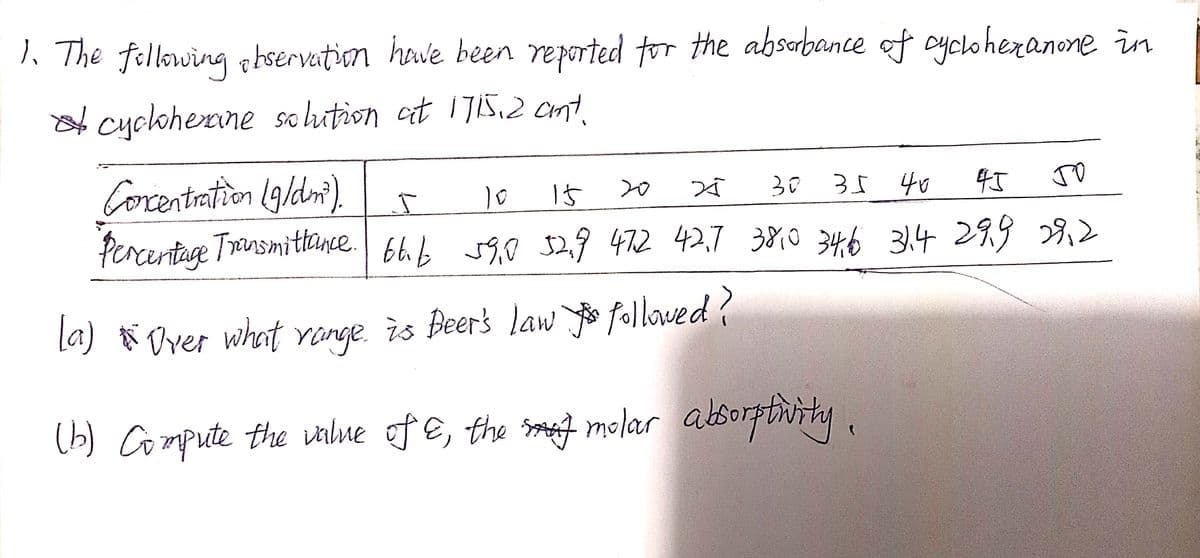 1. The following observation have been reported for the absorbance of cyclohexanone in
cyclohexane solution at 1715.2 cm⁻¹.
Concentration (g/dm³). 5 10 15 20 25 30 35 40 45 50
Percentage Transmittance. 66.6 59.0 52.9 47.2 42.7 38.0 34.6 31.4 29.9 29.2
(a) Over what range. is Beer's law followed?
(b) Compute the value of ε, the molar absorptivity.